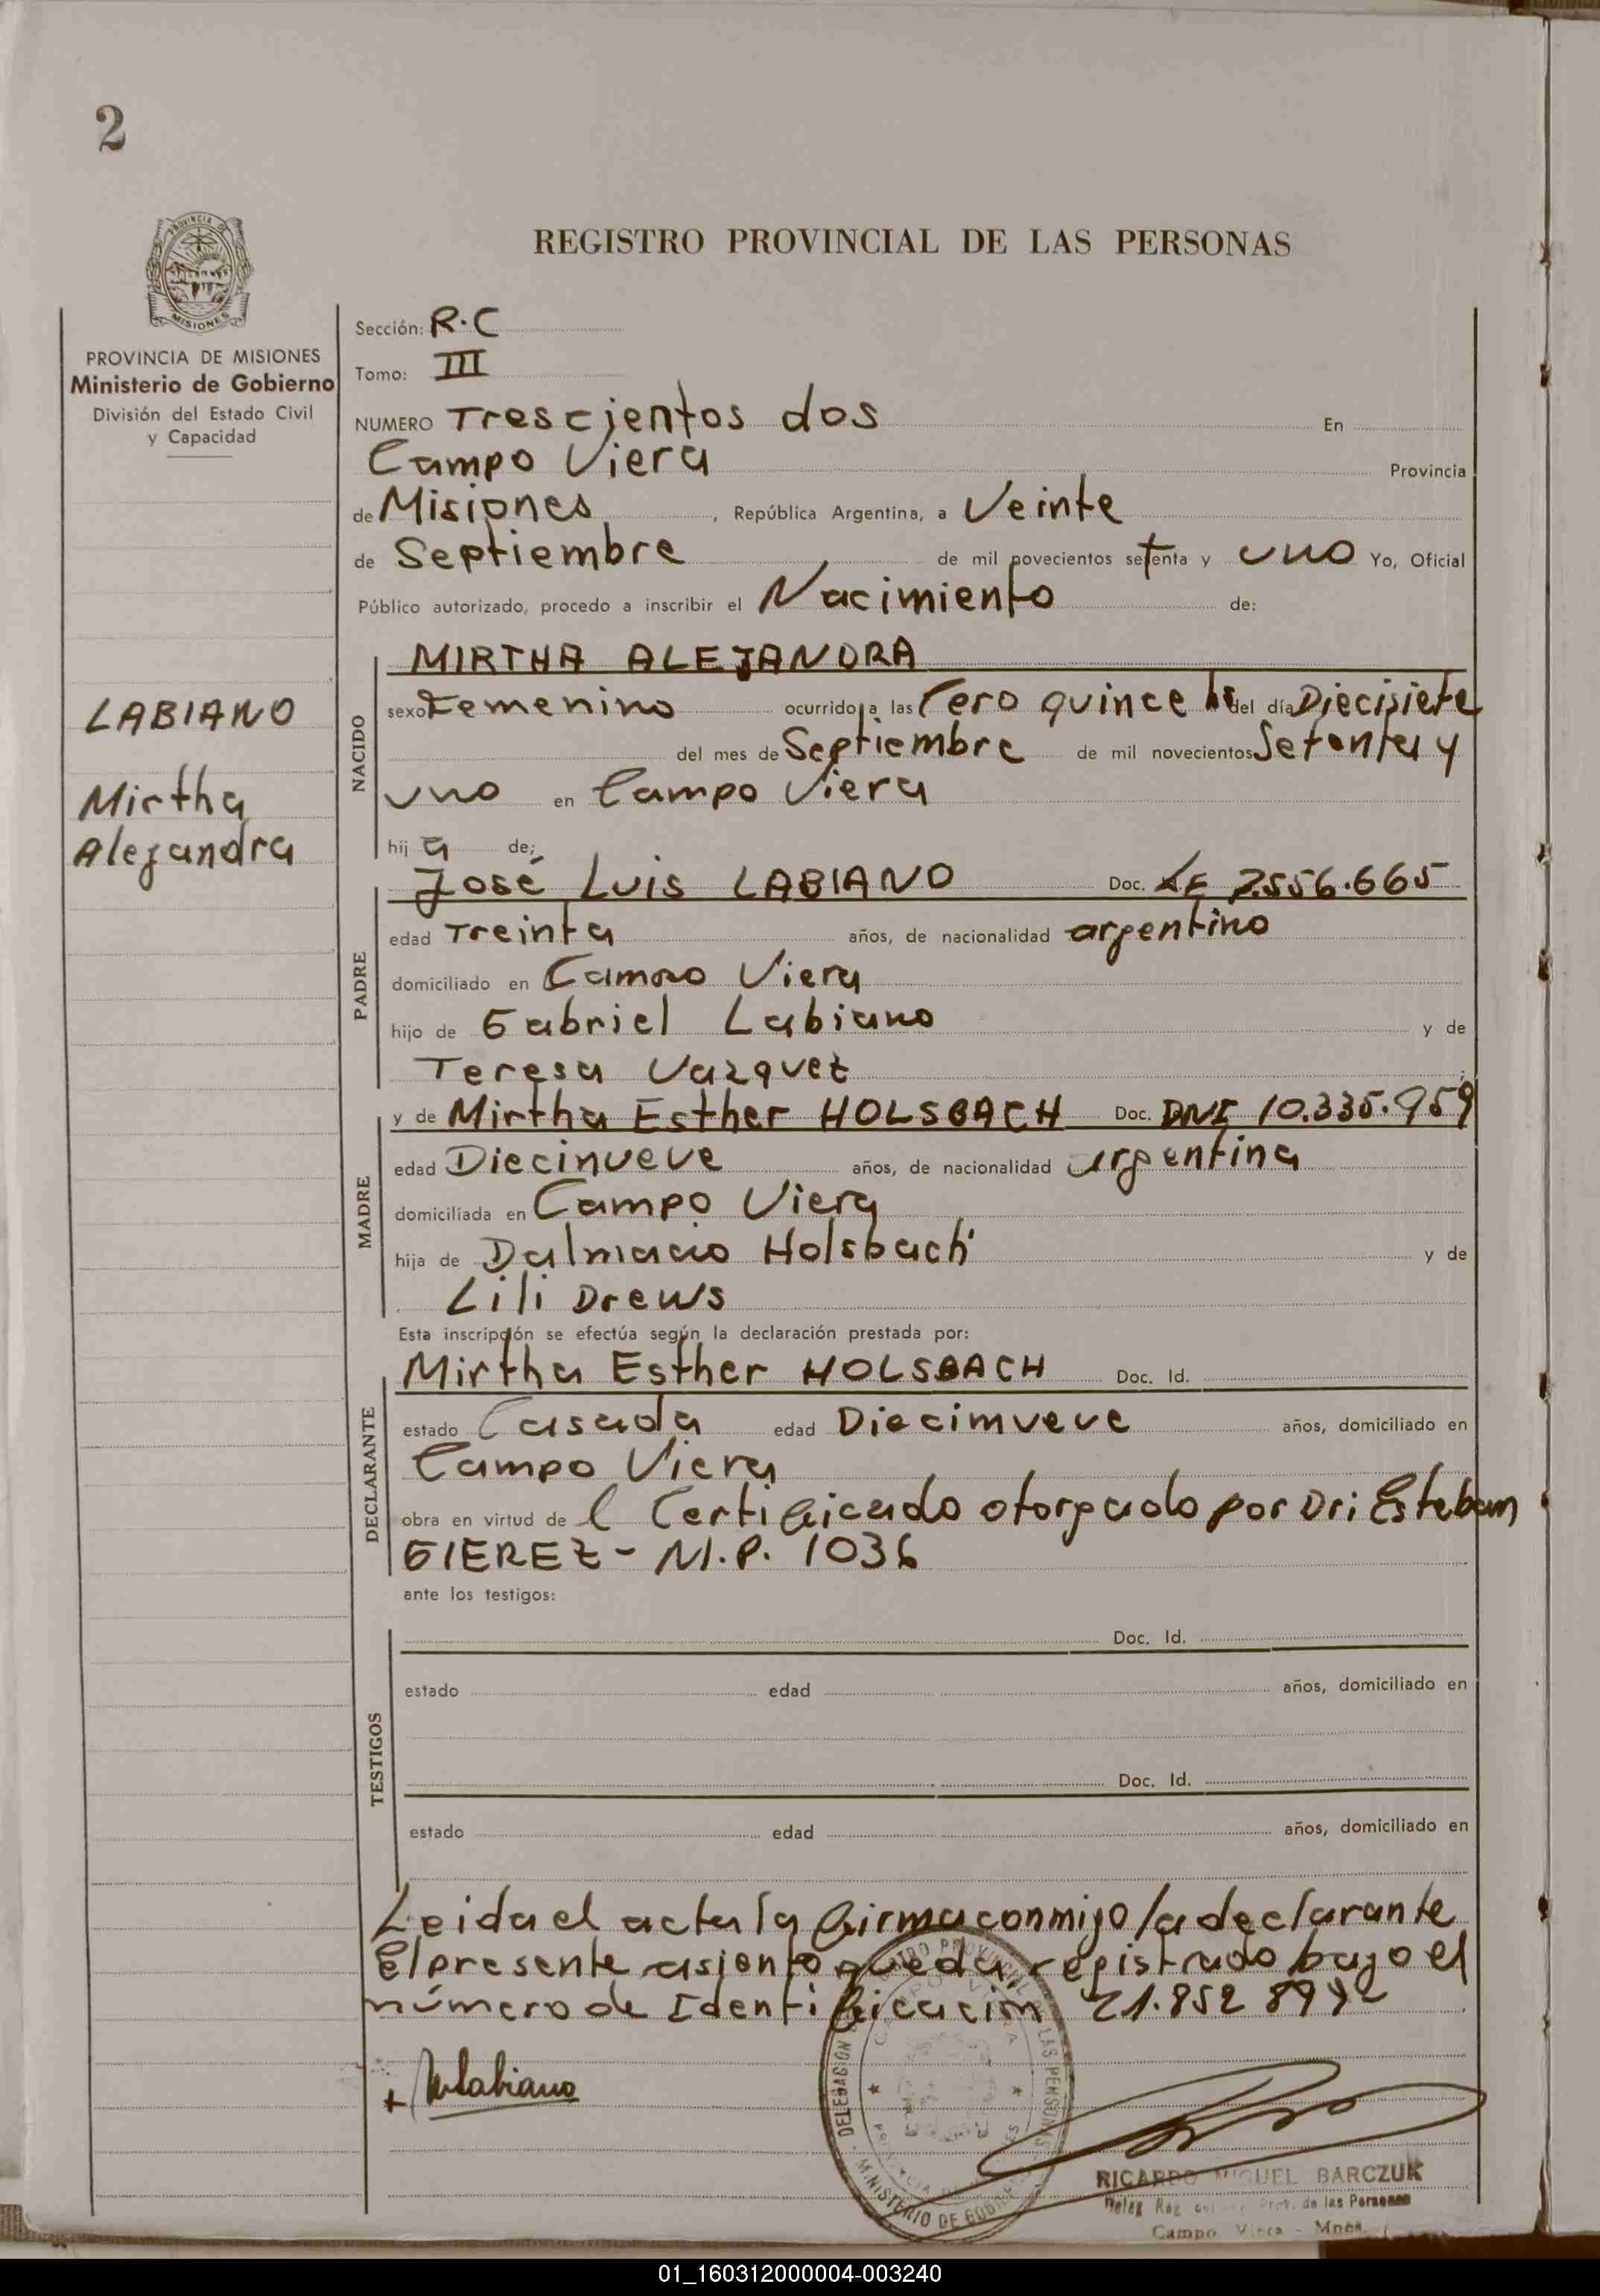 2
REGISTRO PROVINCIAL DE LAS PERSONAS
PROVINCIA DE MISIONES
Ministerio de Gobierno
División del Estado Civil
y Capacidad
LABIANO
Mirtha
Alejandra
Sección: R.C
Tomo: III
NUMERO Trescientos dos En
Campo Viera Provincia
de Misiones, República Argentina, a Veinte
de Septiembre de mil novecientos setenta y uno Yo, Oficial
Público autorizado, procedo a inscribir el Nacimiento de:
NACIDO
MIRTHA ALEJANDRA
sexo Femenino ocurrido a las Cero quince hs del día Diecisiete
del mes de Septiembre de mil novecientos Setenta y
uno en Campo Viera
hija de:
PADRE
José Luis LABIANO Doc. LE 7.556.665
edad Treinta años, de nacionalidad argentino
domiciliado en Campo Viera
hijo de Gabriel Labiano y de
Teresa Vazquez
MADRE
y de Mirtha Esther HOLSBACH Doc. DNI 10.335.959
edad Diecinueve años, de nacionalidad argentina
domiciliada en Campo Viera
hija de Dalmacio Holsbach y de
Lili Drews
Esta inscripción se efectúa según la declaración prestada por:
DECLARANTE
Mirtha Esther HOLSBACH Doc. Id.
estado Casada edad Diecinueve años, domiciliado en
Campo Viera
obra en virtud de l Certificado otorgado por Dr: Esteban
GIEREZ - M.P. 1036
ante los testigos:
TESTIGOS
Doc. Id.
estado edad años, domiciliado en
Doc. Id.
estado edad años, domiciliado en
Leida el acta la firma conmigo la declarante
El presente asiento queda registrado bajo el
número de Identificación 21.852
+ Labiano
DELEGACION REGISTRO PROVINCIAL DE LAS PERSONAS
MINISTERIO DE GOBIERNO
RICARDO MIGUEL BARCZUK
Deleg Reg Prov. de las Personas
Campo Viera - Mnes.
01_160312000004-003240